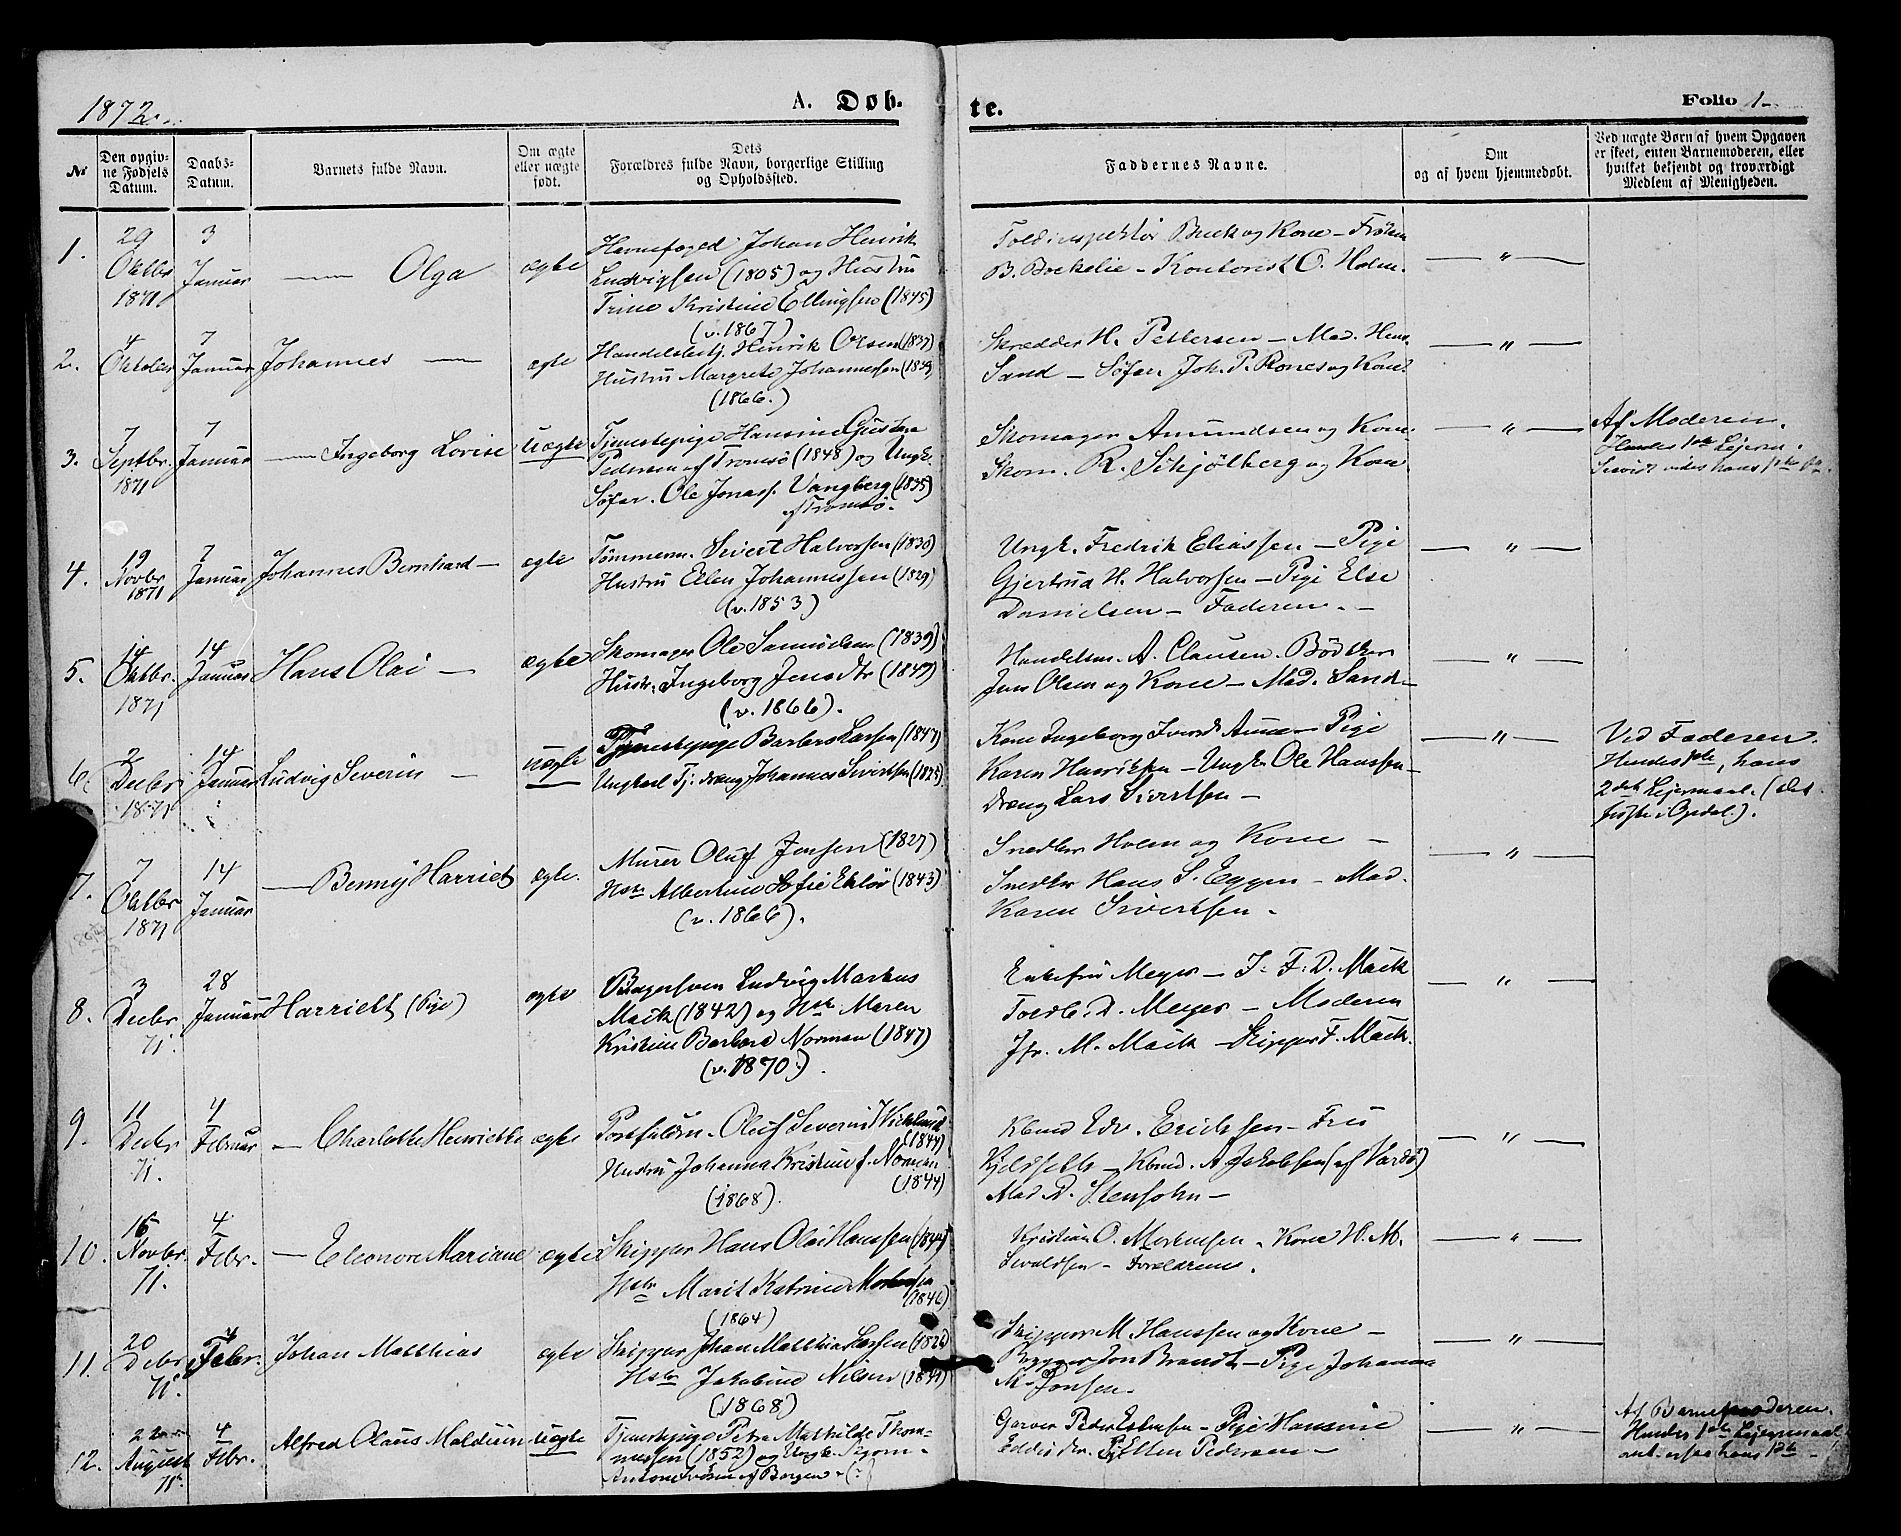 1872.
A. Døb-
te.
Folio 1.
№
Den opgiv-
ne Fødsels
Datum.
Daabs-
Datum.
Barnets fulde Navn.
Om ægte
eller uægte
født.
Dets
Forældres fulde Navn, borgerlige Stilling
og Opholdssted.
Faddernes Navne.
Om
og af hvem hjemmedøbt.
Ved uægte Børn af hvem Opgaven
er skeet, enten Barnemoderen, eller
hvilket bekjendt og troværdigt
Medlem af Menigheden.
1.
29
Oktbr
1871
3
Januar
Olga
ægte
Havnefoged Johan Henrik
Ludvigsen (1805) og Hustru
Trine Kristine Ellingsen (1845)
(v. 1867)
Toldinspektør Buck og Kone - Frøken
B. Bockelie - Kontorist O. Holm.
— " —
2.
4
Oktober
7
Januar
Johannes
ægte
Handelsbetj. Henrik Olsen (1837)
Hustru Margrete Johannessen (1839)
(1866.)
Skrædder H. Pettersen - Mad. Hens.
Sand - Søfar. Joh. P. Rones og Kone
— " —
3.
7
Septbr.
1871
7
Januar
Ingeborg Lovise
uægte
Tjenestepige Hansine Gustava
Pedersen af Tromsø (1848) og Ungk.
Søfar. Ole Jonass. Vangberg (1835)
af Tromsø.
Skomager Amundsen og Kone
Skom. R. Schjølberg og Kone
— " —
Af Moderen.
Hendes 1ste Lejerm.
4.
19
Novbr
1871
7
Januar
Johannes Bernhard
ægte
Tømmerm. Sivert Halvorsen (1830)
Hustru Elen Johannessen (1829)
(v. 1853)
Ungk. Fredrik Eliassen - Pige
Gjertrud H. Halvorsen - Pige Else
Danielsen - Faderen. -
— " —
5.
14
Oktbr.
1871
14
Januar
Hans Olai
ægte
Skomager Ole Samuelsen (1839)
Hustr. Ingeborg Jensdtr (1849)
(v. 1866).
Handelsm. A. Clausen. Bødker
Jens Olsen og Kone - Mad. Sand -
— " —
6.
2
Decbr
1871
14
Januar
Ludvig Severin
uægte
Tjenestepige Barbara Larsen (1847)
Ungkarl Tj. dreng Johannes Sivertsen
Kone Ingeborg - Pige
Karen Henriksen - Ungk. Ole Hanssen -
dreng Lars Sivertsen -
— " —
Ved Faderen.
Hendes 1ste, hans
2det Lejermaal. (det
første i Opdal).
7.
7
Oktbr
1871
14
Januar
Benny Harriet
ægte.
Murer Oluf Jensen (1827)
Hstr Albertine Sofie Ekløv (1843)
(v. 1866).
Snedker Holm og Kone -
Snedker Hans S. Eggen - Mad.
Karen Sivertsen -
— " —
8.
3
Decbr
71.
28
Januar
Harriett (Pige)
ægte
Bagersven Ludvig Markus
Mack (1842) og Hstr Maren
Kristine Barbara Norman (1847)
(v. 1870).
Enkefru Meyer - J. F. D. Mack
Toldb. D. Meyer - Moderen
Jfr. M. Mack - Skipper F. Mack.
— " —
9.
11
Decbr
71.
4
Februar
Charlotte Henriette
ægte
Postfuldm. Oluf Severin Wicklund
(1844)
Hustru Johanna Kristine f. Norman
(1844)
(1868).
Kbmd Edv. Erichsen - Fru
Kjeldseth - Kbmd. A. Jakobsen (af Vardø)
Mad D. Stensohn -
— " —
10.
15
Novbr.
71.
4
Febr.
Eleonore Mariane
ægte
Skipper Hans Olai Hanssen
Hstr Marit Katrine Mortensen
(1846)
(1864)
Kristian O. Mortensen - Kone H. M.
Sivaldsen - Forældrene.
— " —
11.
20
Debr
71.
4
Febr.
Johan Matthias
ægte
Skipper Johan Matthias Larsen
Hstr Jakobine Nilsen
(1868)
Skipper M Hanssen og Kone -
Brygger Jon Brandt - Pige Johanna
M. Jonsen.
— " —
12.
22
August
71.
4
Febr.
Alfred Olaus Maldiun
uægte
Tjenestepige Petra Mathilde Thom-
mesen (1852) og Ungk. Skom-
Anton af Bergen -
Garver Peder - Pige Hansine
Pedersen -
— " —
Af Barnemoderen.
Hendes 1ste Lejermaal